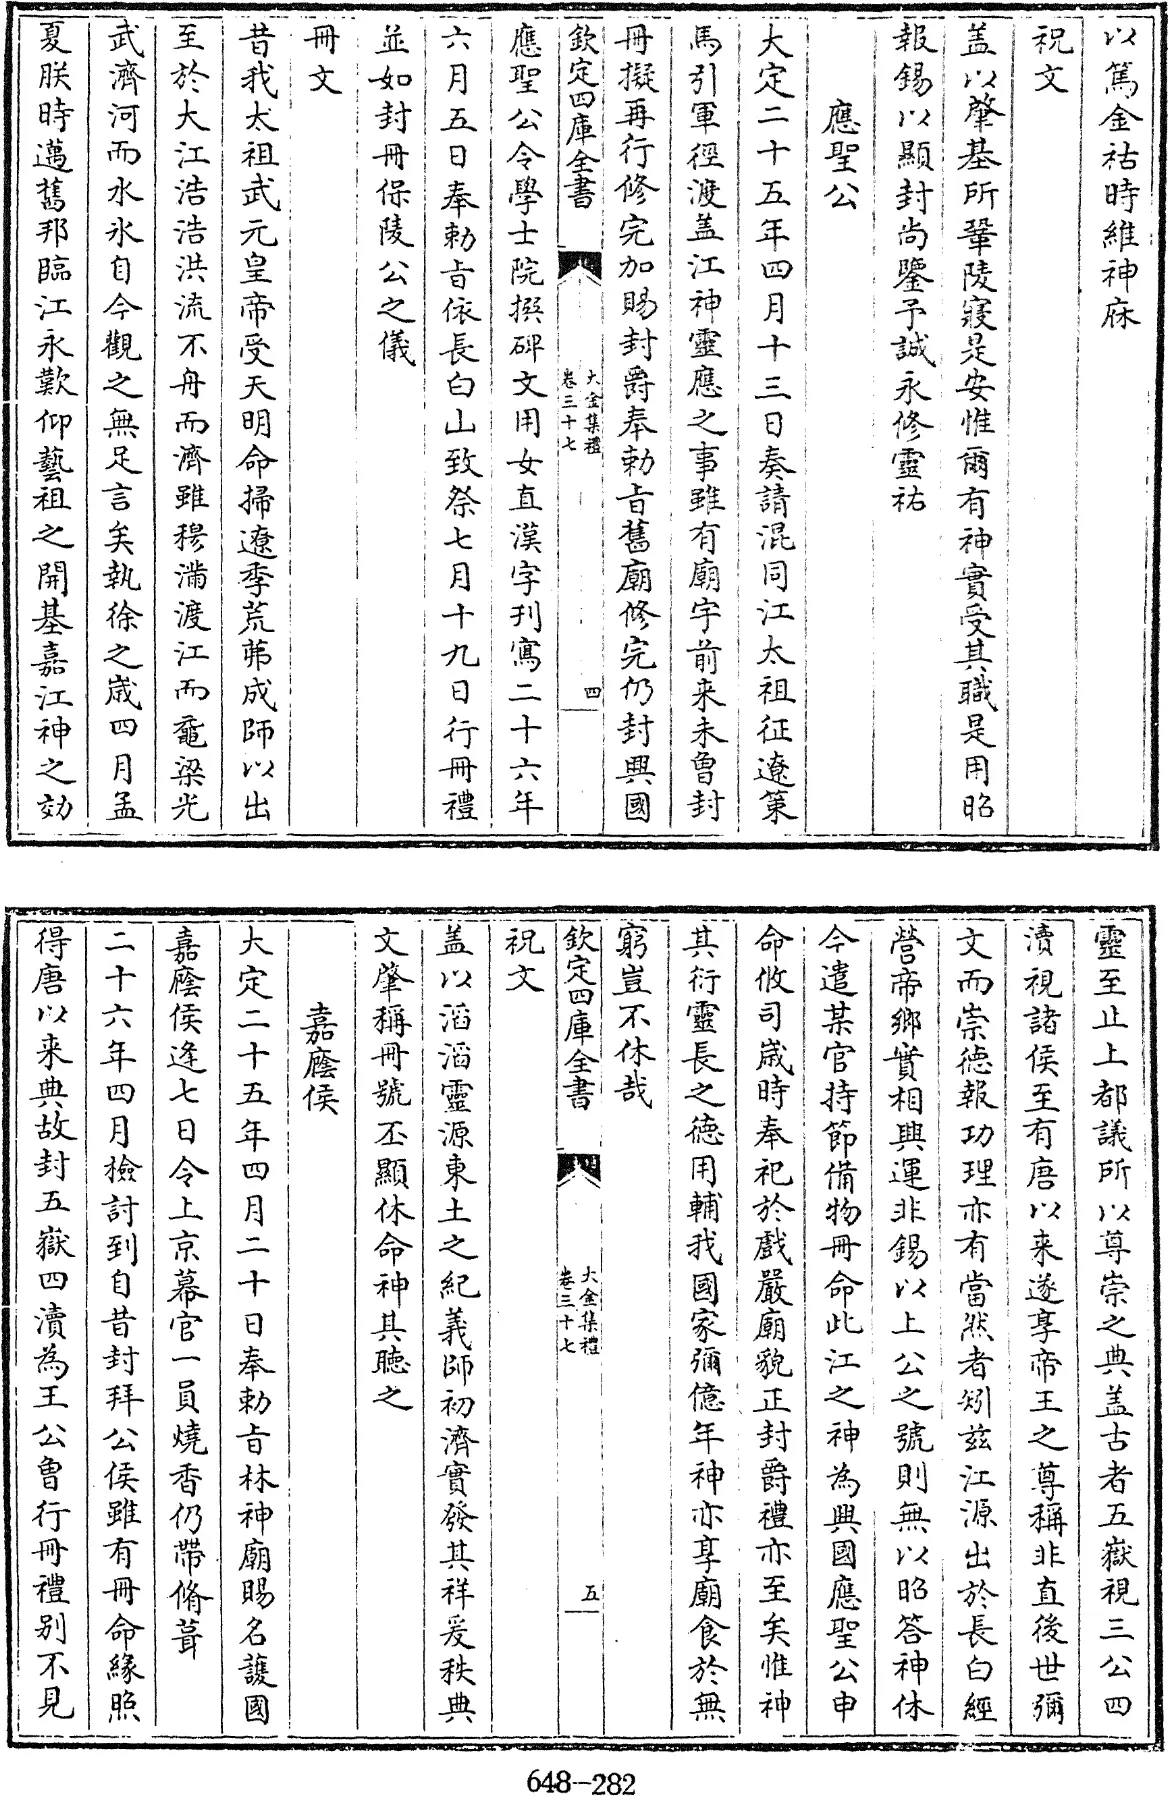 以篤金祜時維神庥
祝文
盖以肇基所肇陵寢是安惟爾有神實受其職是用昭
報錫以顯封尚鑒予誠永修靈祐
應聖公
大定二十五年四月十三日奏請混同江太祖征遼策
馬引軍徑渡盖江神靈應之事雖有廟宇前来未曾封
冊擬再行修完加賜封爵奉勅㫖舊廟修完仍封興國
欽定四庫全書
大金集禮
卷三十七
四
應聖公令學士院撰碑文用女直漢字刋寫二十六年
六月五日奉勅㫖依長白山致祭七月十九日行冊禮
並如封冊保陵公之儀
冊文
昔我太祖武元皇帝受天明命掃遼季荒茀成師以出
至於大江浩浩洪流不舟而濟雖穆滿渡江而黿梁光
武濟河而水氷自今觀之無足言矣執徐之歳四月孟
夏朕時邁舊邦臨江永歎仰藝祖之開基嘉江神之効
靈至止上都議所以尊崇之典盖古者五嶽視三公四
瀆視諸侯至有唐以来遂享帝王之尊稱非直後世彌
文而崇徳報功理亦有當然者矧兹江源出於長白經
營帝鄉實相興運非錫以上公之號則無以昭答神休
今遣某官持節備物冊命此江之神為興國應聖公申
命攸司歳時奉祀於戲嚴廟貌正封爵禮亦至矣惟神
其衍靈長之徳用輔我國家彌億年神亦享廟食於無
窮豈不休哉
欽定四庫全書
大金集禮
卷三十七
五
祝文
盖以滔滔靈源東土之紀義師初濟實發其祥爰秩典
文肇稱冊號丕顯休命神其聴之
嘉廕侯
大定二十五年四月二十日奉勅㫖林神廟賜名護國
嘉廕侯逢七日令上京幕官一員燒香仍帶脩葺
二十六年四月檢討到自昔封拜公侯雖有冊命緣照
得唐以来典故封五嶽四瀆為王公曾行冊禮别不見
648-282